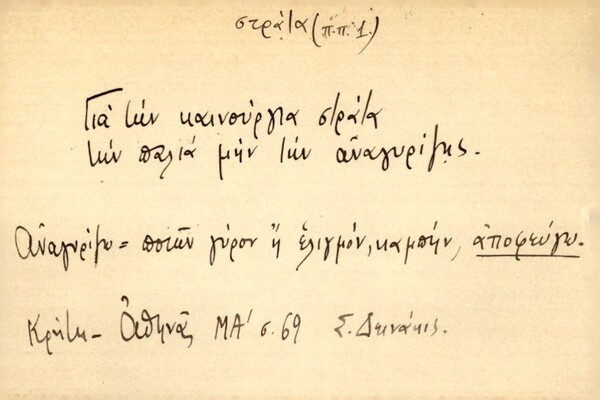 στράτα (π.π. 1.)
Γιὰ τὴν καινούργια στράτα
τὴν παλιὰ μὴν τὴν ἀναγυρίζῃς.
Ἀναγυρίζω = ποιῶν γύρον ἢ ἑλιγμόν, καμπήν, ἀποφεύγω.
Κρήτη - Ἀθηνᾶ ΜΑ' σ. 69 Σ. Δεινάκις.